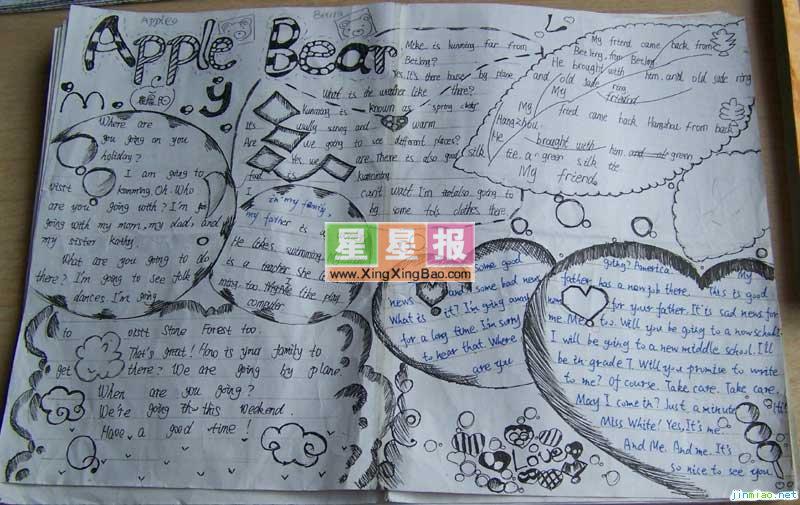 Apple
Apple Bear
y
Where are
you going on you
holiday?
I am going to
visit kunming. Oh. Who
are you going with? I'm
going with my mom, my dad, and
my sister kathy.
What are you going to do
there? I'm going to see folk
dances. I'm going
to visit Stone Forest too.
That's great! How is your family to
get there? We are going by plane.
When are you going?
We're going this weekend.
Have a good time!
Mike is kunming far from
Beijing?
Yes. It's there by plane
What is the weather like there?
kunming is known as spring
It's sunny and warm
Are we going to see different places?
Yes, we are. There is also good silk
I can't wait. I'm going to
some clothes there
in my family,
my father is a
He likes swimming
is a teacher. She
like play
computer
My friend came back from
He brought with him and old jade ring
My friend
My friend came back Hangzhou from back
Hangzhou
brought with him and green
tie. a green silk tie
My friend.
some good
news and some bad news
What is it? I'm going away
for a long time. I'm sorry
to hear that. Where
are you
going? America.
father has a new job there. This is good
for your father. It's sad news for
me. Me too. Will you be going to a new school?
I will be going to a new middle school. I'll
be in grade 7. Will you promise to write
to me? Of course. Take care. Take care.
May I come in? Just a minute
Miss White! Yes, It's me
And Me. And me. It's
so nice to see you
Love
星星报
www.XingXingBao.com
jinmiao.net